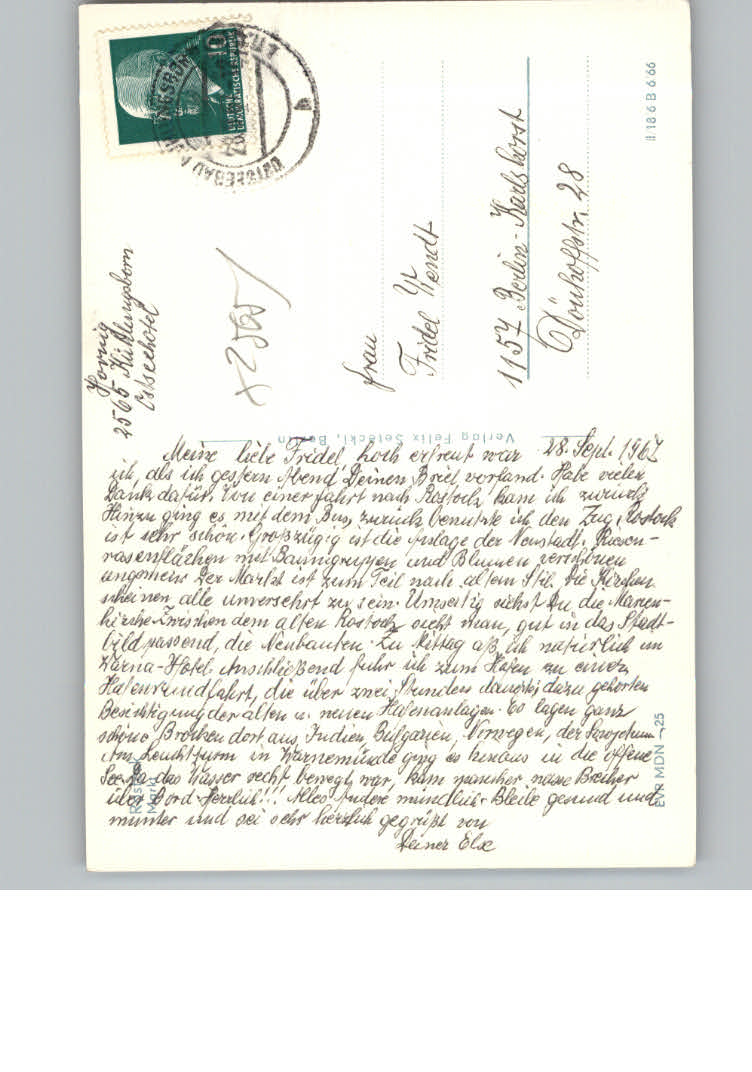 10
DEUTSCHE
DEMOKRATISCHE REPUBLIK
OSTSEEBAD KÜHLUNGSBORN
Hornig
2565 Kühlungsborn
Ostseehotel
x2565
Frau
Fridel Wendt
1157 Berlin-Karlshorst
Dönhoffstr. 28
II 18 6 B 6/66
Verlag Felix Setecki, Berlin
28. Sept. 1967
Meine liebe Fridel, hoch erfreut war
ich, als ich gestern Abend Deinen Brief vorfand. Habe vielen
Dank dafür. Von einer Fahrt nach Rostock kam ich zurück
Hinzu ging es mit dem Bus, zurück benutzte ich den Zug. Rostock
ist sehr schön. Großzügig ist die Anlage der Neustadt. Riesen-
rasenflächen mit Baumgruppen und Blumen verschönen
ungemein. Der Markt ist zum Teil nach altem Stil. Die Kirchen
scheinen alle unversehrt zu sein. Umseitig siehst Du die Marien-
kirche. Zwischen dem alten Rostock sieht man, gut in das Stadt-
bild passend, die Neubauten. Zu Mittag aß ich natürlich im
Warna-Hotel. Anschließend fuhr ich zum Hafen zu einer
Hafenrundfahrt, die über zwei Stunden dauerte; dazu gehörten
Besichtigung der alten u. neuen Hafenanlagen. Es lagen ganz
schöne Brocken dort aus Indien, Bulgarien, Norwegen, der Sowjetunion
Am Leuchtturm in Warnemünde ging es hinaus in die offene
See. Da das Wasser recht bewegt war, kam mancher nasse Brecher
über Bord. Herrlich!!! Alles Andere mündlich. Bleibe gesund und
munter und sei sehr herzlich gegrüßt von
Deiner Else
Rostock
Markt
EVP MDN -,25